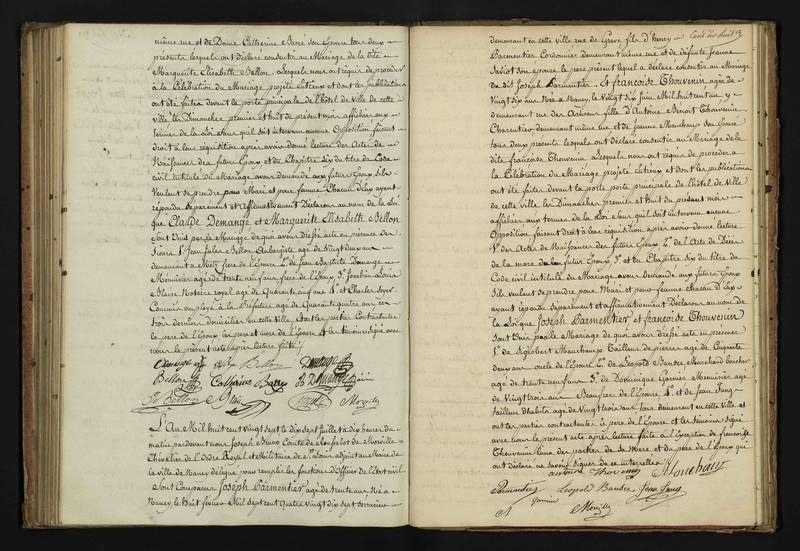 même rue et de Dame Catherine Barré son Epouse tous deux
présents lesquels ont déclaré consentir au Mariage de la dite
Marguerite Elisabeth Bellon. Lesquels nous ont requis de procéder
à la Célébration du Mariage projeté entr'eux et dont les publications
ont été faites devant la porte principale de l'hôtel de Ville de cette
ville les Dimanches premier et huit du présent mois affichées aux
termes de la Loi sans qu'il soit intervenu aucune Opposition faisant
droit à leur réquisition après avoir donné lecture des Actes de
Naissance des futurs Epoux et du Chapitre six du titre du Code
civil intitulé du Mariage avons demandé aux futurs Epoux s'ils
veulent se prendre pour Mari et pour femme Chacun d'eux ayant
répondu séparément et affirmativement Déclarons au nom de la Loi
que Claude Demange et Marguerite Elisabeth Bellon
sont Unis par le Mariage de quoi avons dressé acte en présence des
Sieurs 1° Jean Bellon Aubergiste agé de Vingt deux ans
demeurant à Metz frère de l'Epouse 2° de Jean Baptiste Demange
Menuisier agé de trente neuf ans frère de l'Epoux 3° Joachim Louis
Notaire royal agé de Quarante cinq ans 4° et Charles
Commis employé à la Préfecture agé de Quarante quatre ans ces
trois derniers domiciliés en cette ville. Et ont les parties Contractantes
le père de l'Epoux, les père et mère de l'Epouse et les témoins signé avec
nous le présent acte après lecture faite.
Demange M E Bellon Demange
Bellon Catherine Barré JB Demange
Bellon Morville
L'An Mil huit cent vingt sept le dix sept Juillet à dix heures du
matin pardevant nous Joseph Bruno Comte de Morville
Chevalier de l'Ordre Royal et Militaire de St Louis adjoint au Maire de
la ville de Nancy délégué pour remplir les fonctions d'Officier de l'Etat civil
sont Comparus Joseph Parmentier agé de trente ans Né à
Nancy, le huit février Mil sept cent Quatre Vingt dix sept
demeurant en cette Ville rue de Grève fils d'henry
Cent dix huit
Parmentier Cordonnier demeurant même rue et de défunte Jeanne
son épouse le père présent lequel a déclaré consentir au Mariage
du dit Joseph Parmentier. Et françoise Thouvenin agée de
Vingt six ans Née à Nancy, le Vingt six Juin Mil huit cent un y
demeurant rue des fille d'Antoine Benoit Thouvenin
Charpentier demeurant même rue et de Jeanne Manchaux son Epouse
tous deux présents lesquels ont déclaré consentir au Mariage de la
dite françoise Thouvenin Lesquels nous ont requis de procéder à
la Célébration du Mariage projeté entr'eux et dont les publications
ont été faites devant la porte principale de l'hôtel de Ville
de cette ville, les Dimanches premier et huit du présent mois
affichées aux termes de la Loi sans qu'il soit intervenu aucune
Opposition faisant Droit à leur réquisition après avoir donné lecture
1° des Actes de Naissance des futurs Epoux 2° de l'Acte de Décès
de la mère du futur Epoux 3° et du Chapitre six du titre du
Code civil intitulé du Mariage avons demandé aux futurs Epoux
s'ils veulent se prendre pour Mari et pour femme Chacun d'Eux
ayant répondu séparément et affirmativement Déclarons au nom de
la Loi que Joseph Parmentier et françoise Thouvenin
sont Unis par le Mariage de quoi avons dressé acte en présence
1° de Sigisbert Manchaux Tailleur de pierres agé de Cinquante
deux ans oncle de l'Epouse 2° de Léopold Marchand boucher
agé de trente neuf ans 3° de Dominique Garnier Menuisier agé
de Vingt trois ans Beaufrère de l'Epoux 4° et de Jean Jung
tailleur d'habits agé de Vingt trois ans tous demeurant en cette Ville et
ont les parties contractantes le père de l'Epoux et les témoins signé
avec nous le présent acte après lecture faite à l'Exception de françoise
Thouvenin l'une des parties de sa Mère et du père de l'Epoux qui
ont déclaré ne savoir signer de ce interpellés
antoine Thouvenin Manchaux
Parmentier Léopold Jean Jung
garnier Morville